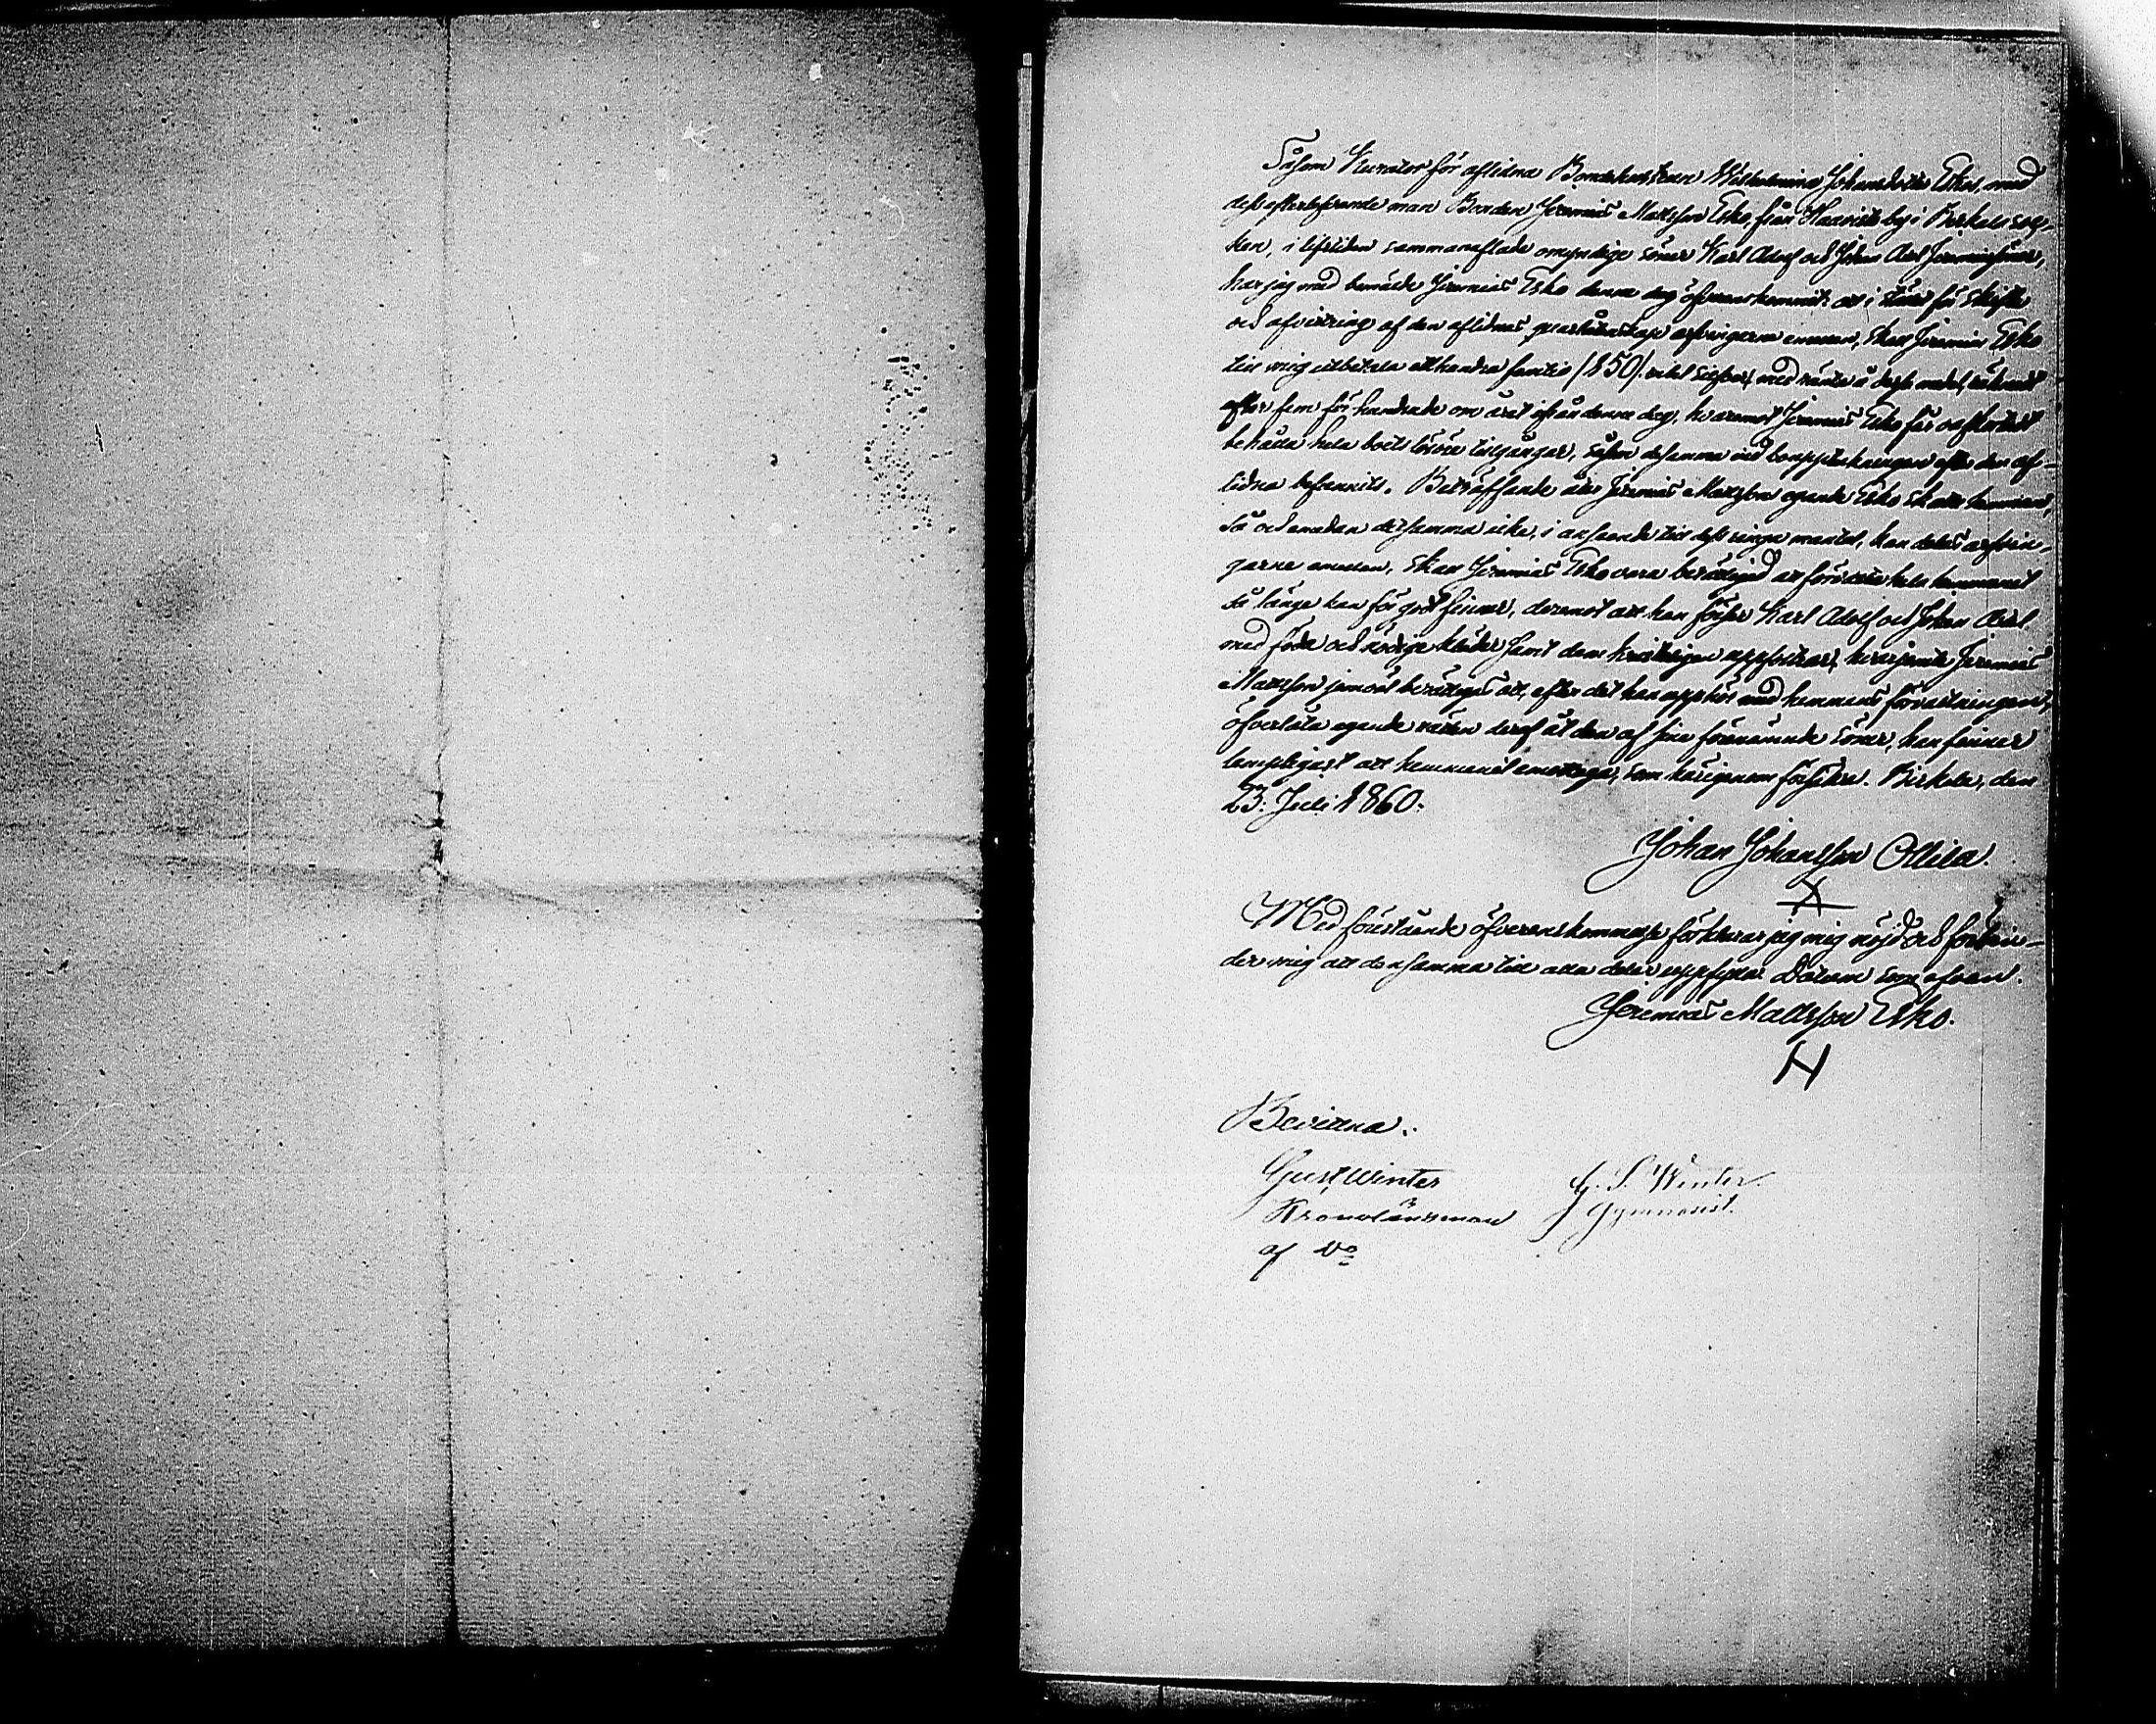 Såsom Kurator för aflidna Bondehustrun Wilhelmina Johansdotter Eskos, med
dess efterlefvande man Bonden Jeremias Mattsson Esko, från Haavisto by i Birkala sog-
ken, i lifstiden sammanaflade omyndige söner Karl Adolf och Johan Axel Jeremiassöner,
har jag med bemälde Jeremias Esko denna dag öfverenskommit: att i stället för skifte
och afvittring af den aflidnas qvarlåtenskap arfvingarne emellan, skall Jeremias Esko
till mig utbetala åttahundra femtio /850/ rubel silfver, med ränta å dessa medel, räknad
efter fem för hundrade om året ifrån denna dag, hvaremot Jeremias Esko får oafkortadt
behålla hela boets lösöre tillgångar, såsom desamma vid bouppteckningen efter den af-
lidna befunnits. Beträffande åter Jeremias Mattsson egande Esko skatte hemman,
så och emedan detsamma icke, i anseende till dess ringa mantal, kan delas arfvin-
garne emellan, skall Jeremias Esko vara berättigad att förvalta hela hemmanet
så länge han för godt finner, deremot att han förser Karl Adolf och Johan Axel
med föda och nödige kläder samt dem kristeligen uppfostrar, hvarjemte Jeremias
Mattsson jemväl berättigas att, efter det han upphört med hemmans förvaltningen,
öfverlåta egande rätten deraf åt den af sine förenämnde söner, han finner
lämpligast att hemmanet emottaga; som härigenom försäkras. Birkala, den
23. Juli 1860.
Johan Johansson Ollila.
Med förestående öfverenskommelse förklarar jag mig nöjd och förbin-
der mig att densamma till alla delar uppfylla. Datum som ofvan.
Jeremias Mattsson Esko.
Bevittna:
Gust. Winter
Kronolänsman
af Do
G. S. Winter.
Gymnasist.